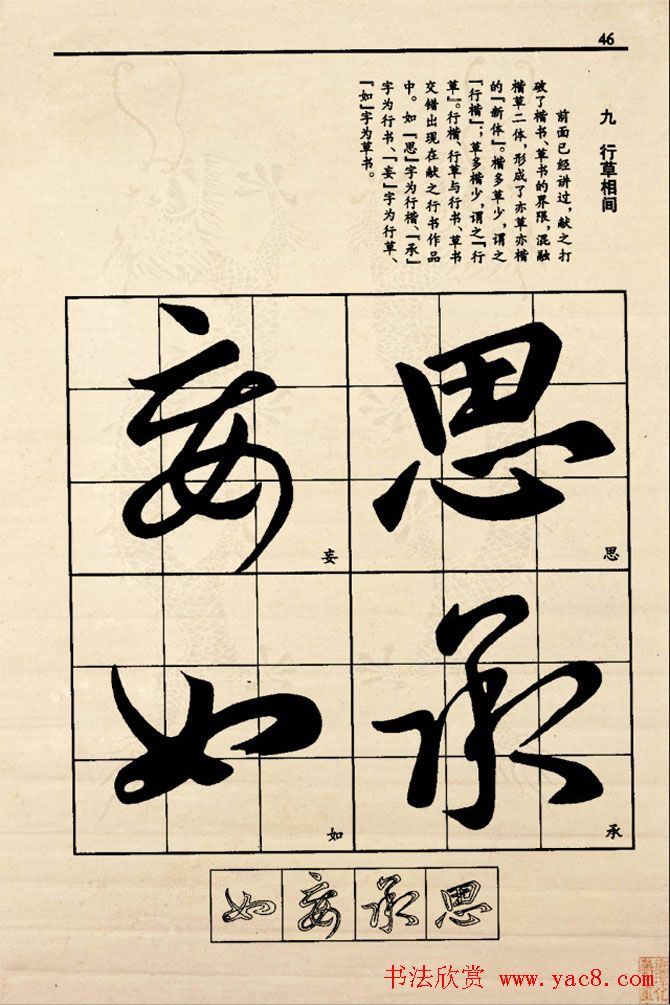 46
九 行草相间
前面已经讲过，献之打
破了楷书、草书的界限，混融
楷草二体，形成了亦草亦楷
的『新体』。楷多草少，谓之
『行楷』；草多楷少，谓之『行
草』。行楷、行草与行书、草书
交错出现在献之行书作品
中。如『思』字为行楷、『承』
字为行书、『妄』字为行草、
『如』字为草书。
思
思
承
承
妄
妄
如
如
如妄承思
书法欣赏 www.yac8.com